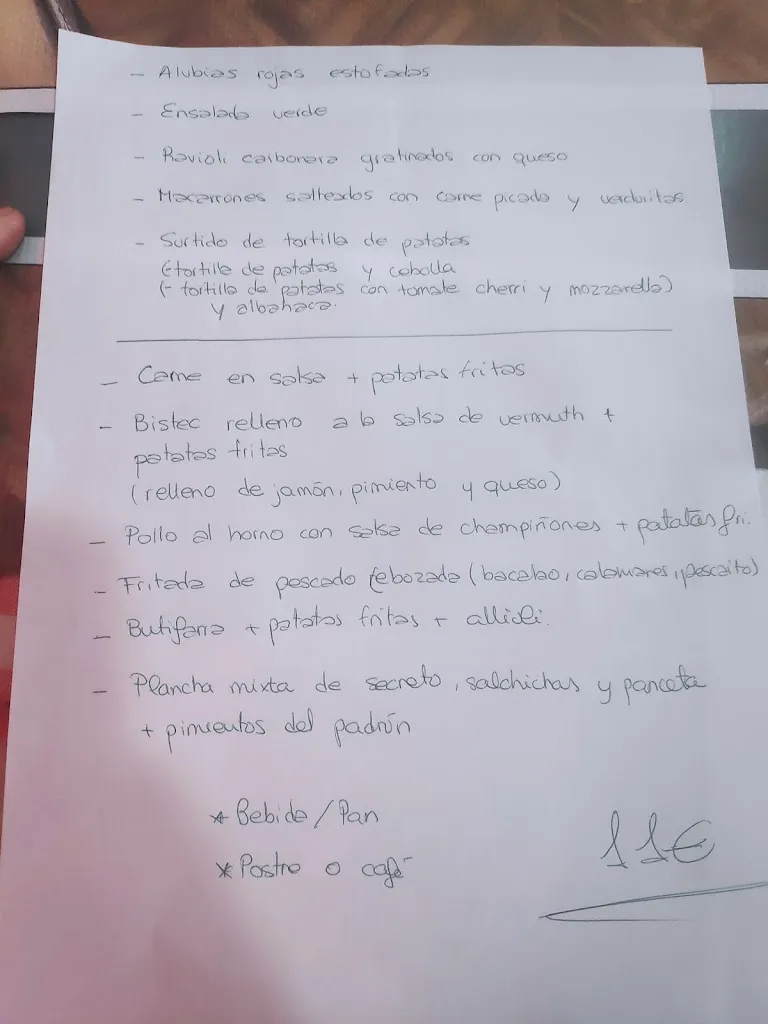 - Alubias rojas estofadas
- Ensalada verde
- Ravioli carbonara gratinados con queso
- Macarrones salteados con carne picada y verduritas
- Surtido de tortilla de patatas
(tortilla de patatas y cebolla
(- tortilla de patatas con tomate cherri y mozzarella)
y albahaca.
- Carne en salsa + patatas fritas
- Bistec relleno a la salsa de vermuth +
patatas fritas
(relleno de jamón, pimiento y queso)
- Pollo al horno con salsa de champiñones + patatas fri.
- Fritada de pescado rebozada (bacalao, calamares, pescaito)
- Butifarra + patatas fritas + allioli.
- Plancha mixta de secreto, salchichas y panceta
+ pimientos del padrón
* Bebida / Pan
* Postre o café
11€